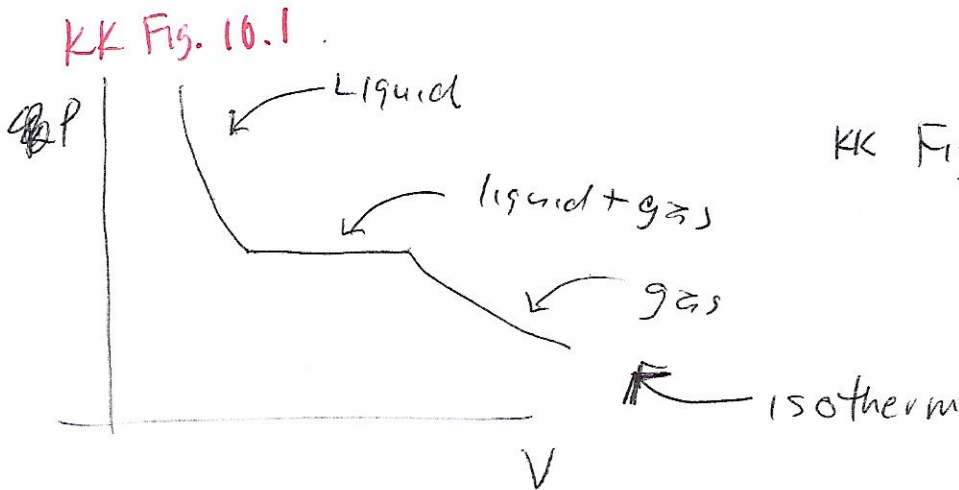 KK Fig. 10.1
Liquid
P
KK Fi
liquid + gas
gas
isotherm
V